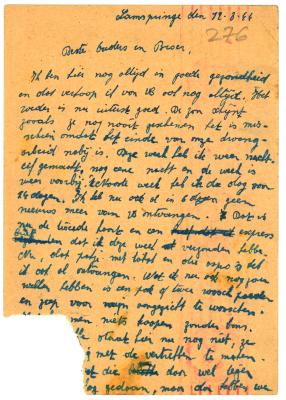 Lamspringe den 12-8-44
276
Beste Ouders en Broer,
Ik ben hier nog altijd in goede gezondheid
en dat verhoop ik van U ook nog altijd. Het
weder is nu uiterst goed. De zon schijnt
zooals ze nog nooit geschenen het is mis-
schien omdat het einde van onze dwang-
arbeid nabij is. Deze week heb ik weer nacht-
gemaakt, nog eene nacht en de week is
weer voorbij. week heb ik die dag voor
14 dagen. Ik heb nu ook al in 6 dagen geen
nieuws meer van U ontvangen. Dat is
nu de tweede kaart en een express
dat ik deze week verzonden hebbe
dat pakje met tabak en die heb
ik ook al ontvangen. Wat ik nu ook nog zou
willen hebben is een pak of twee
en zeep voor mijn aangezicht te wasschen.
men niets koopen zonder bons.
staat hier nu nog niet, ze
met de te maken.
die dor wel liggen
gedaan, maar dan hebben we